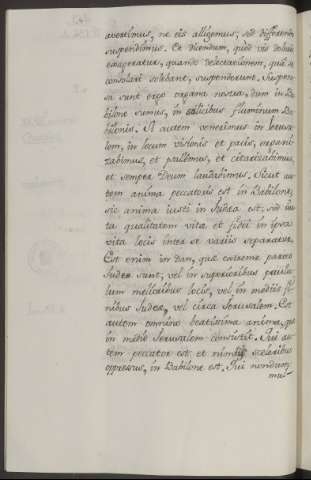 avertimus, ne eis alligemur; sed differentes
suspendimus. Et dicendum, quòd vis doloris
exageratur, quando delectationem, quâ se
consolari solebant, suspenderunt. Suspen-
sa sunt ergo organa nostra, dum in Ba-
bilone sumus, in salicibus fluminum Ba-
bilonis. Si autem venerimus in Jerusa-
lem, in locum visionis et pacis, organi-
zabimus, et psallemus, et citarizabimus,
et semper Deum laudabimus. Sicut au-
tem anima peccatoris est in Babilone,
sic anima iusti in Judea est, sed iux-
ta qualitatem vita et fidei in ipsa
vita locis inter se variis separatur.
Est enim in dan, quæ extreme partes
Judea sunt, vel in superioribus paulu-
lum melioribus locis, vel in mediis fi-
nibus Judea, vel circa Jerusalem. Est
autem omnino beatissima anima, quæ
in medio Jerusalem consistit. Qui au-
tem peccator est, et nimis sceleribus
oppressus, in Babilone est. Qui nondum